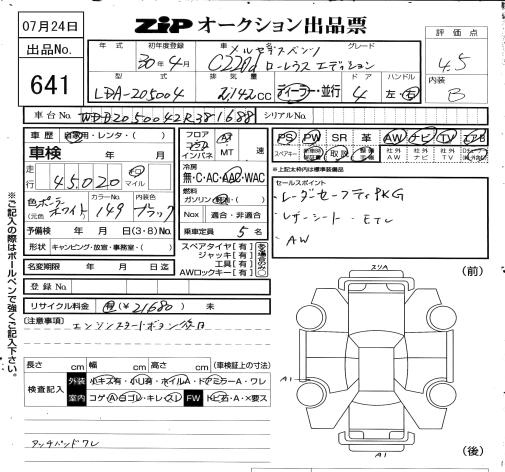 07月24日
ZiP オークション出品票
出品No.
641
年式 初年度登録 車名 グレード 評価点
30年4月 メルセデスベンツ C220d ローレウスエディション 4.5
型式 排気量 ドア ハンドル 内装
LDA-205004 2,142cc ディーラー・並行 4 左・右 B
車台No. WDD2050042R381688 シリアルNo.
車歴 自家用・レンタ・( ) フロア コラム インパネ AT MT 速
PS PW SR 革 AW ナビ TV エアB
スペアキー 取説 社外AW 社外ナビ 社外TV
車検 年 月
※上記太枠内は標準装備品
冷房 無・C・AC・AAC・WAC
走行 45,020 km マイル
燃料 ガソリン
セールスポイント
レーダーセーフティPKG
レザーシート ETC
AW
色 ポーラーホワイト カラーNo. 149 内装色 ブラック
(元色)
Nox 適合・非適合
予備検 年 月 日 (3・8) No.
乗車定員 5名
形状 キャンピング・放宣・事務室・( )
スペアタイヤ[有]
ジャッキ[有]
工具[有]
AWロックキー[有]
名変期限 年 月 日迄
登録No.
リサイクル料金 有(¥21680) 未
(注意事項)
エンジンスタートボタン欠品
長さ cm 幅 cm 高さ cm (車検証上の寸法)
検査記入 外装 小キズ有・小凹有・ホイルA・ドアミラーA・ワレ
室内 コゲA・ヨゴレ・キレ・スレ FW トビ石・A・X要ス
タッチパッドワレ
※ご記入の際はボールペンで強くご記入下さい。
(前)
スリA
A1
A1
(後)